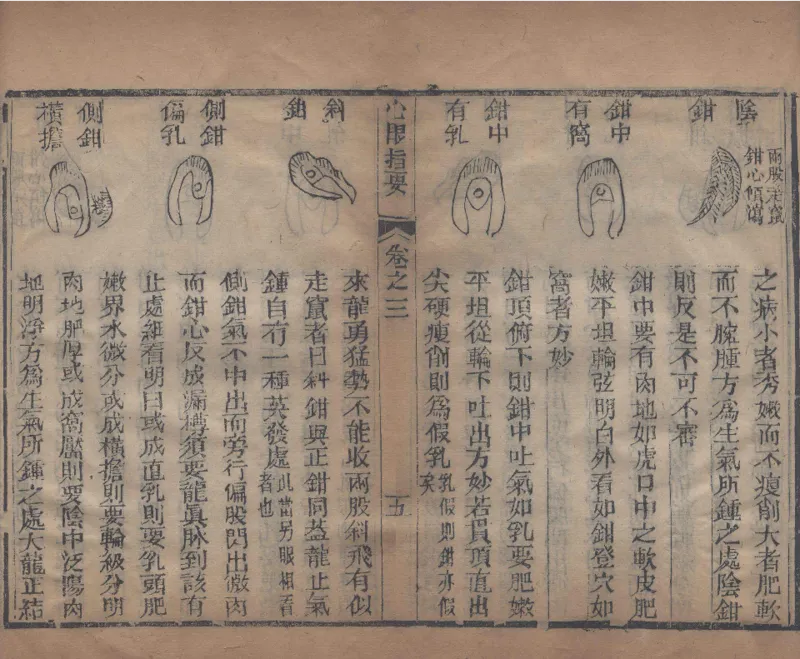 陰鉗
兩股走竄
鉗心傾瀉
之病小者秀嫩而不瘦削大者肥軟
而不臃腫方為生氣所鍾之處陰鉗
則反是不可不審
鉗中有窩
鉗中要有肉地如虎口中之軟皮肥
嫩平坦輪弦明白外看如鉗登穴如
窩者方妙
鉗中有乳
鉗頂俯下則鉗中吐氣如乳要肥嫩
平坦從輪下吐出方妙若貫頂直出
尖硬瘦削則為假乳乳假則鉗亦假矣
心眼指要
卷之三
五
斜鉗
來龍勇猛勢不能收兩股斜飛有似
走竄者曰斜鉗與正鉗同葢龍止氣
鍾自有一種英發處此當另眼相看者也
側鉗偏乳
側鉗氣不中出而旁行偏股閃出微肉
而鉗心反成漏槽須要龍眞脉到該有
止處細看明白或成直乳則要乳頭肥
側鉗橫擔
嫩界水微分或成橫擔則要輪級分明
肉地肥厚或成窩靨則要陰中泛陽肉
地明淨方為生氣所鍾之處大龍正結